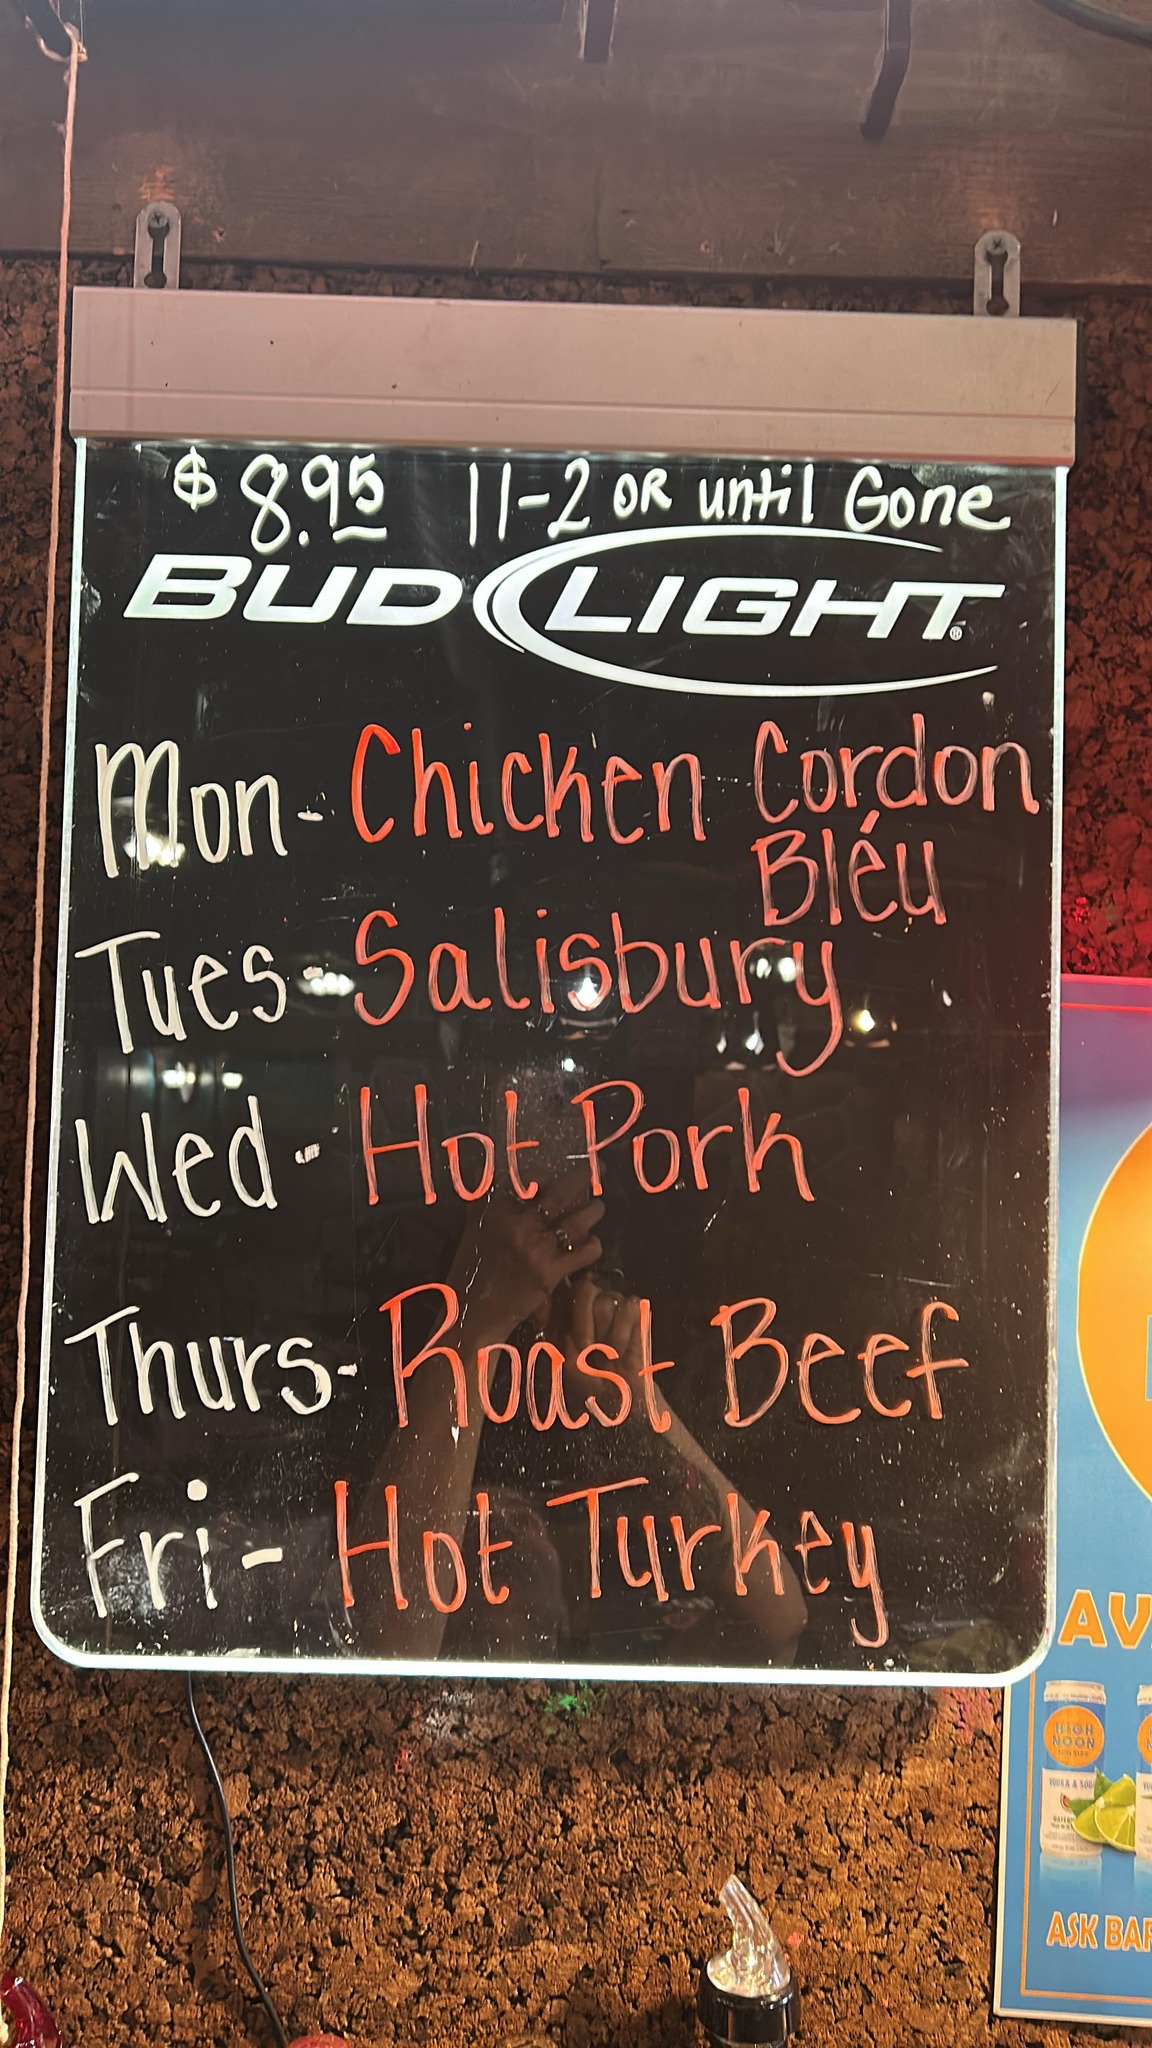 $ 8.95 11-2 OR until Gone
BUD LIGHT
Mon- Chicken Cordon
Bléu
Tues- Salisbury
Wed- Hot Pork
Thurs- Roast Beef
Fri- Hot Turkey
AV
HIGH
NOON
VODKA & SOD
ASK BAR